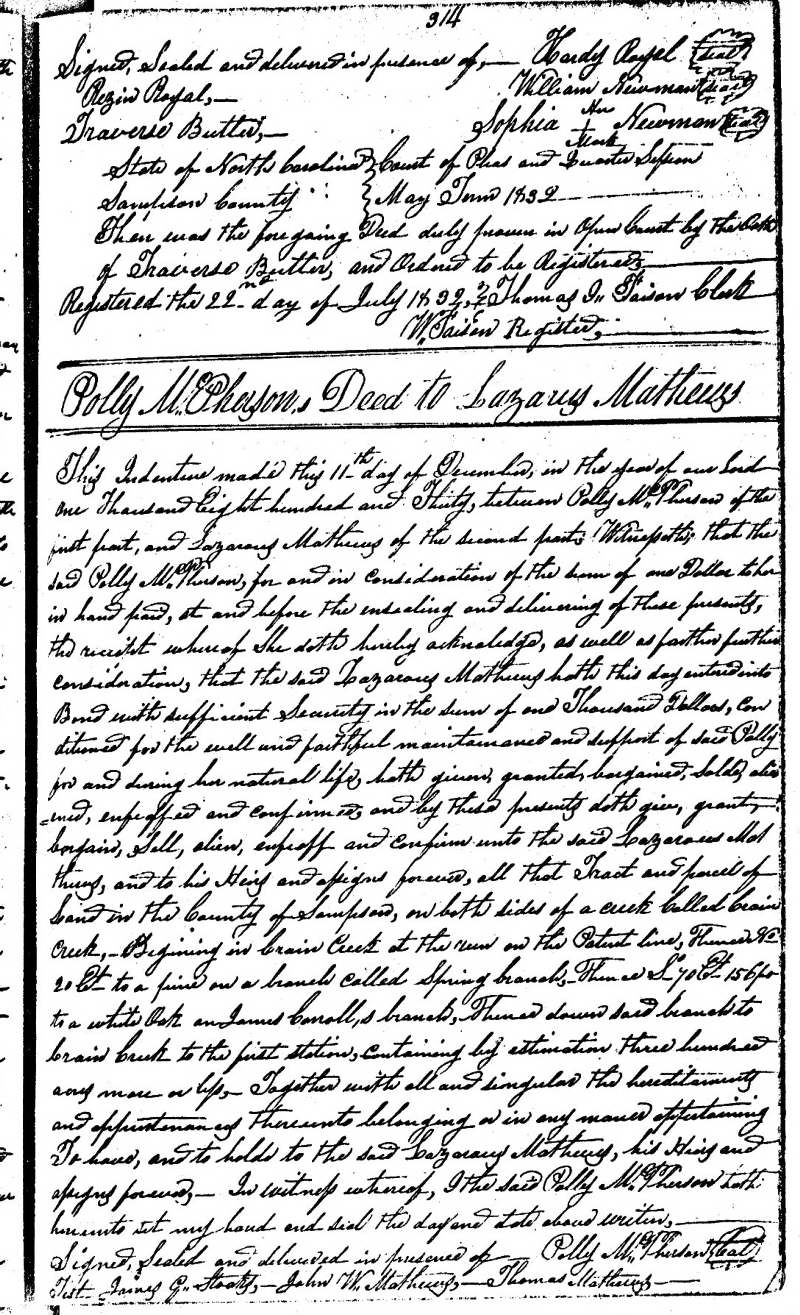 314
Signed, Sealed and delivered in presence of, — Hardy Royal (seal)
Rezin Royal, — William Newman (seal)
Traverse Butler, — Sophia her + Mark Newman (seal)
State of North Carolina } Court of Pleas and Quarter Session
Sampson County } May Term 1832
Then was the foregoing Deed duly proven in Open Court by the Oath
of Traverse Butler, and Ordered to be Registered,
Registered the 22nd day of July 1832, Thomas I. Faison Clerk
W. Faison Register,
Polly McPherson,s Deed to Lazarus Mathews
This Indenture made this 11th day of December, in the year of our Lord
One Thousand Eight hundred and Thirty, between Polly McPherson of the
first part, and Lazarous Mathews of the second part: Witnesseth; that the
said Polly McPherson, for and in consideration of the sum of one Dollar to her
in hand paid, at and before the ensealing and delivering of these presents,
the receipt whereof She doth hereby acknowledge, as well as farther further
consideration, that the said Lazarous Mathews hath this day entered into
Bond with sufficient Security in the sum of one Thousand Dollars, con
ditioned for the well and faithful maintainance and support of said Polly
for and during her natural life, hath given, granted, bargained, Solded, alie
=ened, enfeoffed and confirmed, and by these presents doth give, grant,
bargain, Sell, alien, enfeoff and confirm unto the said Lazarous Mat
thews, and to his Heirs and assigns forever, all that Tract and parcel of
Land in the County of Sampson, on both sides of a creek Called Crain
Creek, — Begining in Crain Creek at the run on the Patent line, Thence
20 Et to a pine on a branch called Spring branch, Thence So 70 Et 156 po
to a white Oak on James Carroll,s branch, Thence down said branch to
Crain Creek to the first station, containing by estimation three hundred
acres more or less, — Together with all and singular the hereditaments
and appurtenances thereunto belonging or in any manner appertaining
To have, and to holds to the said Lazarous Mathews, his Heirs and
assigns forever, — In witness whereof, I the said Polly McPherson hath
hereunto set my hand and seal the day and date above writen,
Signed, Sealed and delivered in presence of — Polly McPherson (Seal)
Test James G. — John W. Mathews, — Thomas Mathews —